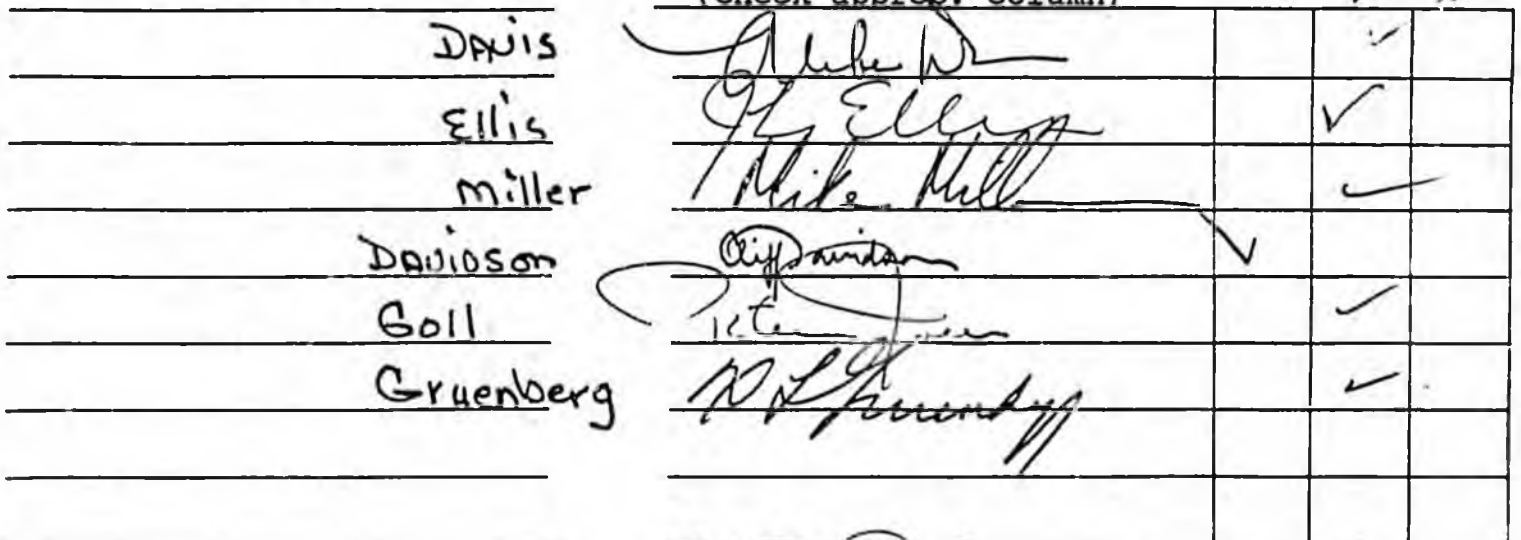 (Check approp. column)
DAVIS Mike D ✓
Ellis Ellis ✓
Miller Mike Mill ✓
DAVIDSON Cliff Davidson ✓
Goll ✓
Gruenberg ✓